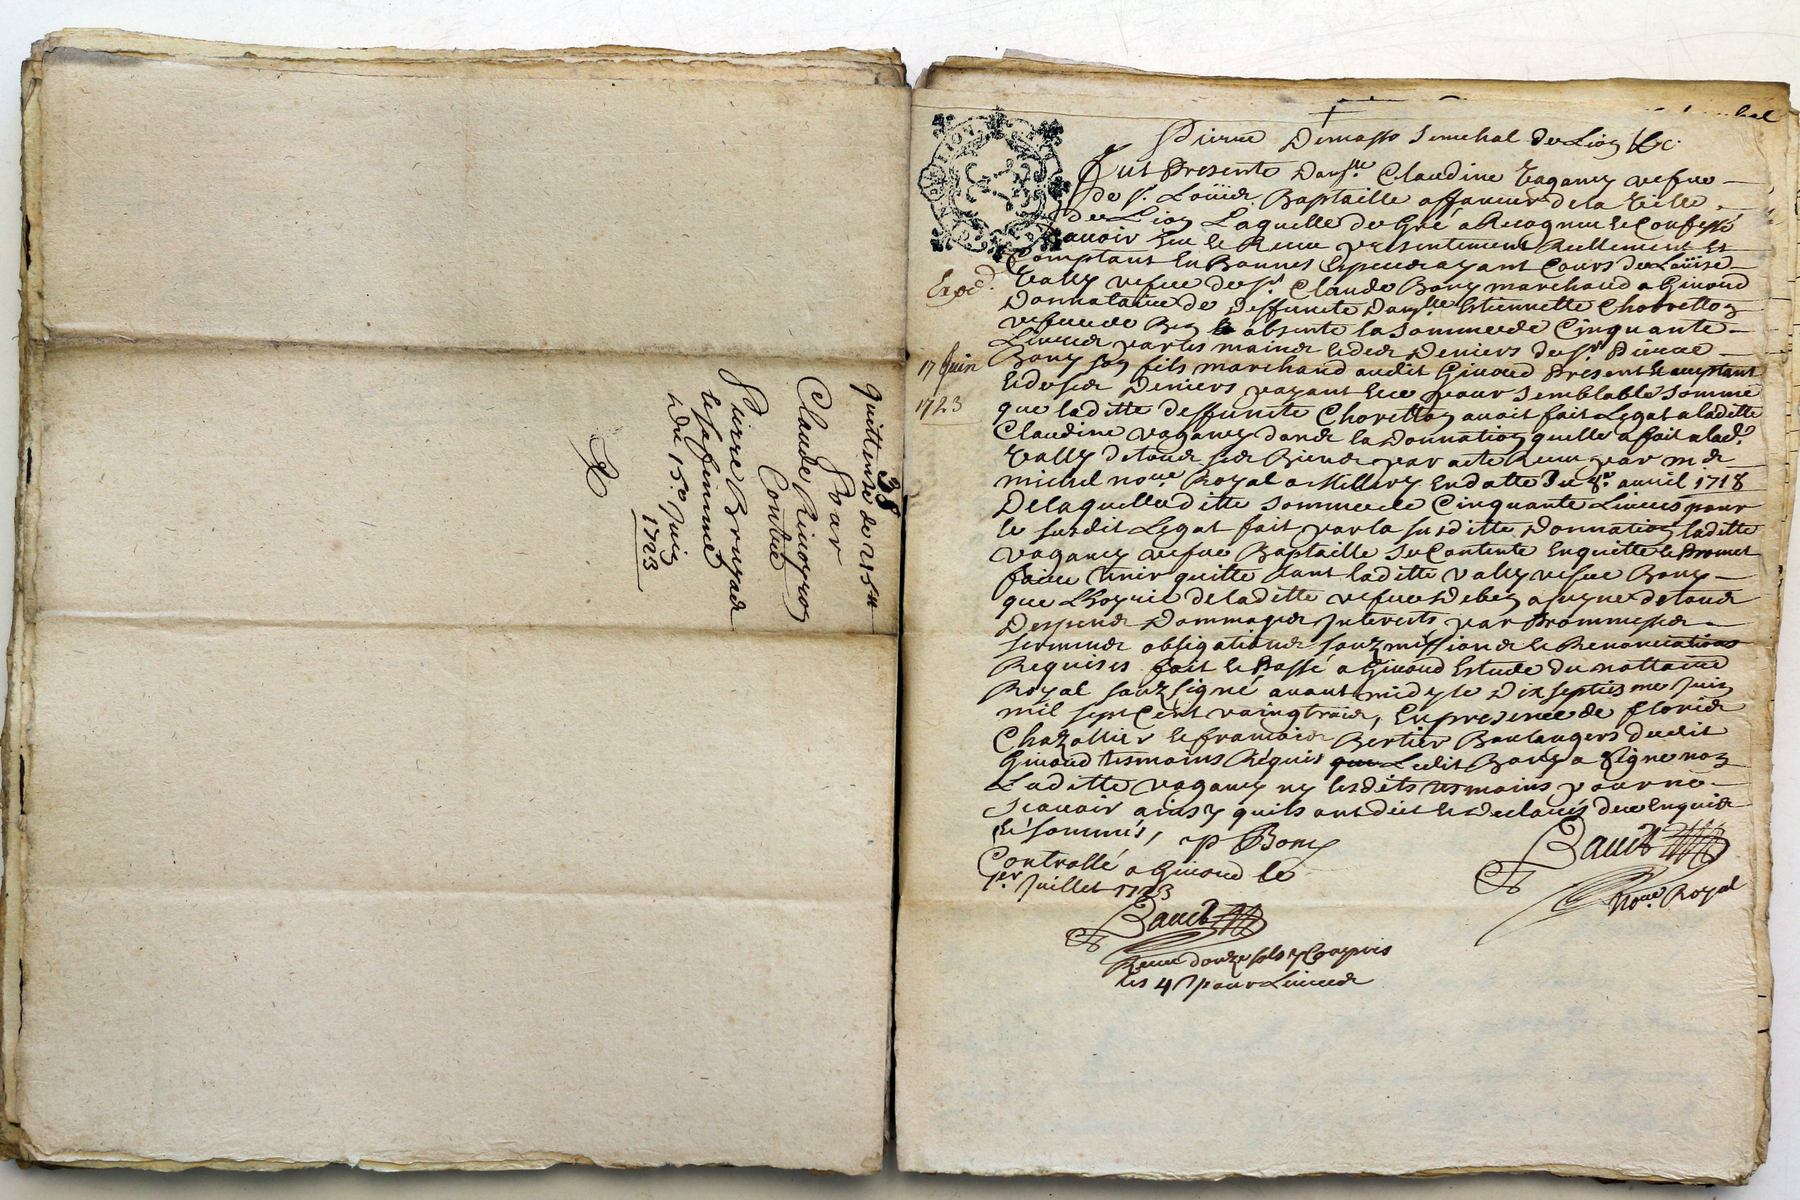 38
quittense de 215ᵗᵗ
par
Claude Rivoyron
Contre
Pierre Bruyas
et sa femme
Du 15ᵉ Juin
1723
Pierre Demasso Senechal de Lion &c.
Fut Presente Damˡˡᵉ Claudine Vaganey vefue
de Sʳ. Loüis Baptaille affaneur de la Ville
de Lion Laquelle de Gré a Recogneu et Confessé
auoir Eu et Receu presentement Reellement et
Comptant En Bonnes Especes ayant Cours de Loüise
Exped.
Vally vefue de Sʳ Claude Bony marchand a Giuord
Donnataire de Deffuncte Damˡˡᵉ Estiennette Chorretton
vefue de absente la Somme de Cinquante
Liures par les mains et des Deniers de Sʳ Pierre
17 Juin
1723
Bony son fils marchand audit Giuord Present et acceptant
et de ses Deniers payant et ce pour Semblable Somme
que laditte deffuncte Chorretton auoit fait Legat a laditte
Claudine Vaganey dans la Donnation quelle a fait a lad.
Vally de tous ses Biens par acte Receu par mᵉ
michel noʳᵉ Royal a Millery En datte du 8ᵉ. auril 1718
De laquelle ditte Somme de Cinquante Liures pour
le susdit Legat fait par la susditte Donnation laditte
vaganey vefue Baptaille se Contente En quitte et Promet
faire tenir quitte tant laditte Vally vefue Bony
que L'hoyrie de laditte vefue a peyne de tous
Despens Dommages Interests par Promesses
serments obligations souzmissions et Renonciations
Requises fait et Passé a Giuord Estude du nottaire
Royal souzsigné auant midy le Dix septiesme Juin
mil sept Cent vaingtrois, En presence de floris
Chazottier et francois Bertier Boulangers dudit
Giuord tesmoins Requis Ledit Bony a Signe non
Laditte Vaganey ny lesdits tesmoins pour ne
scauoir ainsy quils ont dit et Declarés de ce Enquis
et sommés,
P Bony
Controllé a Giuord le
1ᵉʳ Juillet 1723
noʳᵉ Royal
Receu douze sols y Compris
les 4 ˢ pour Liures